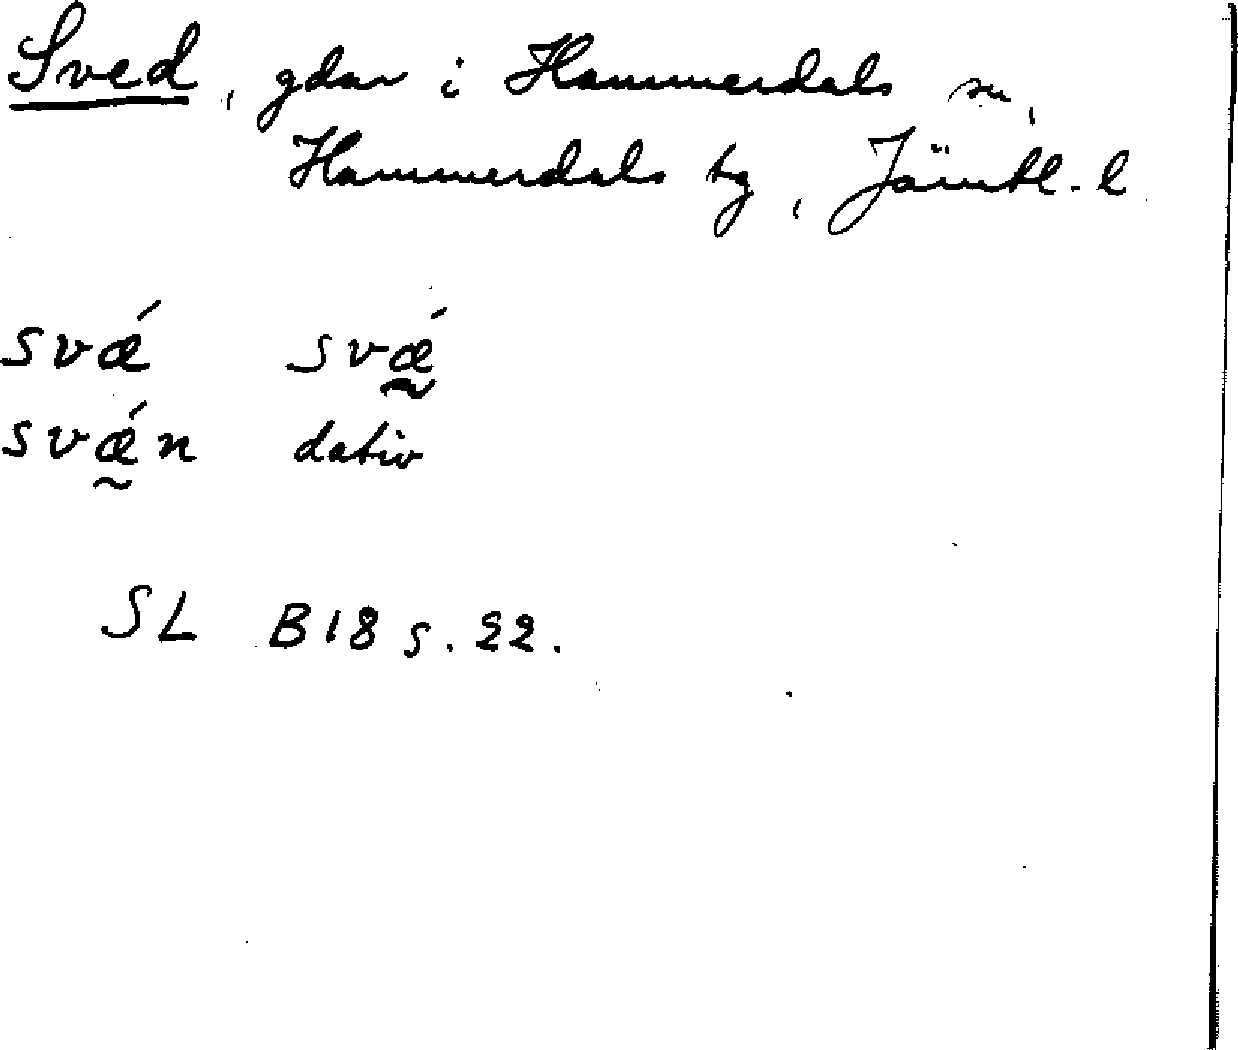 Sved, gdar i Hammerdals sn,
Hammerdals tg, Jämtl. l
svǽ svǽ̰
svǽ̰n dativ
SL B18 s. 22.